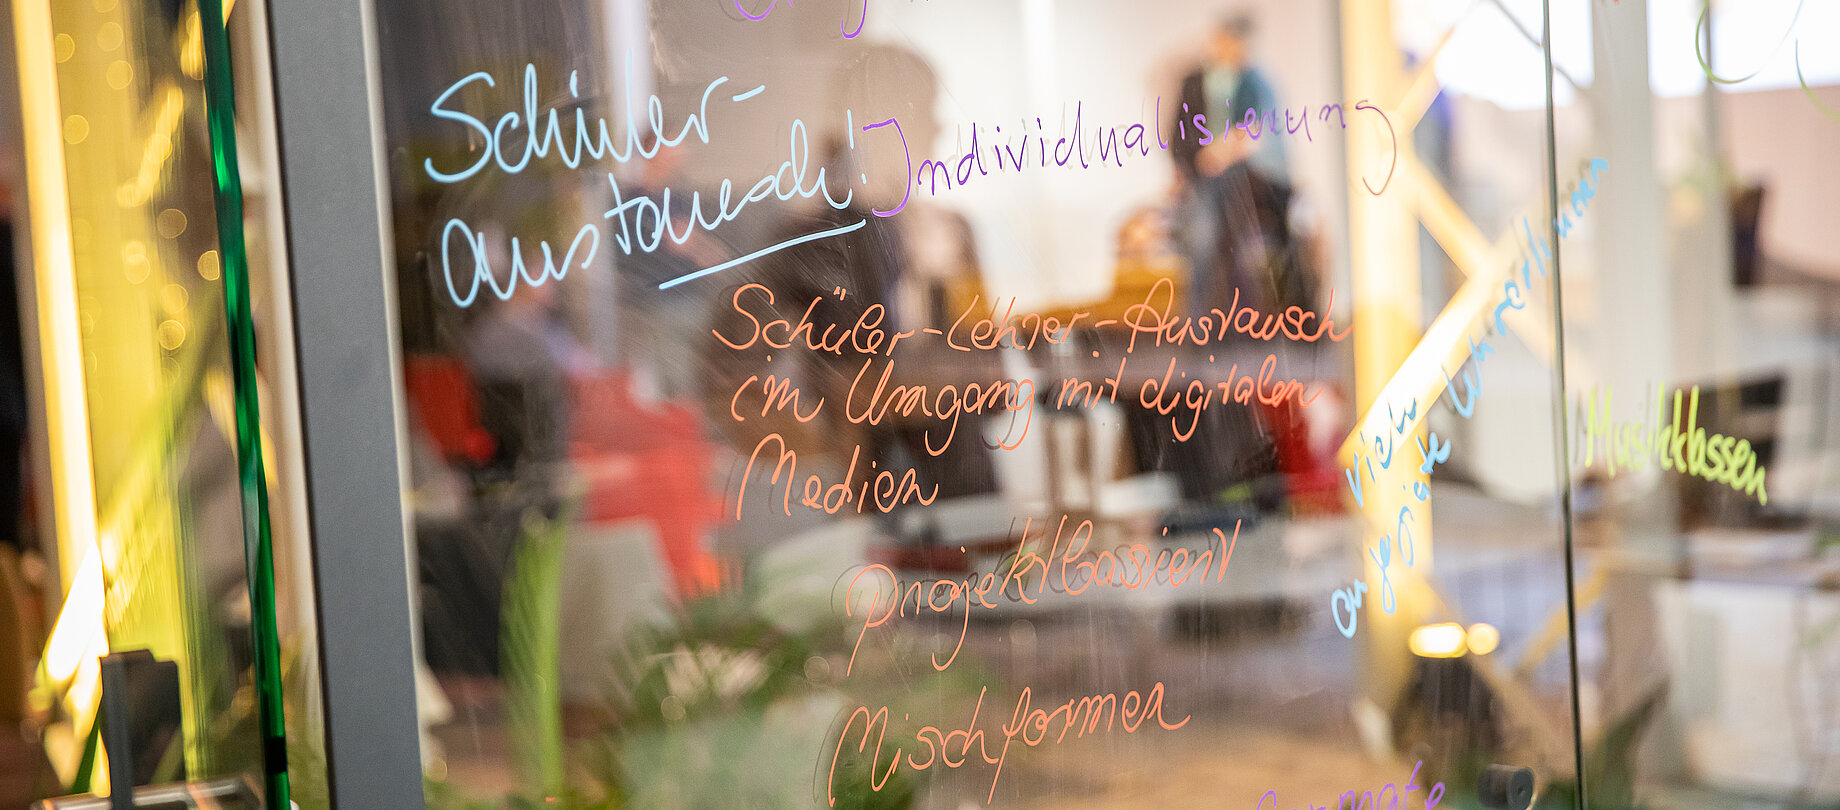 Schüler-
austausch!
Individualisierung
Schüler-Lehrer-Austausch
im Umgang mit digitalen
Medien
projektbasiert
Mischformen
viele
Musikklassen